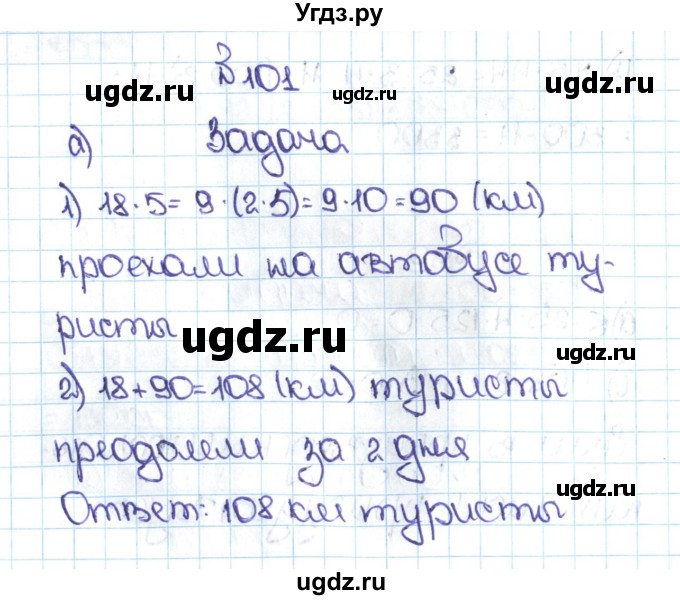 Угдз.ру
В 101
ugdz.ru ugdz.ru ugdz.ru
а) Задача
1) 18·5= 9·(2·5)=9·10=90 (км)
проехали на автобусе ту-
ристы
ugdz.ru ugdz.ru
2) 18+90=108 (км) туристы
преодолели за 2 дня
ugdz.ru
Ответ: 108 км туристы
ugdz.ru